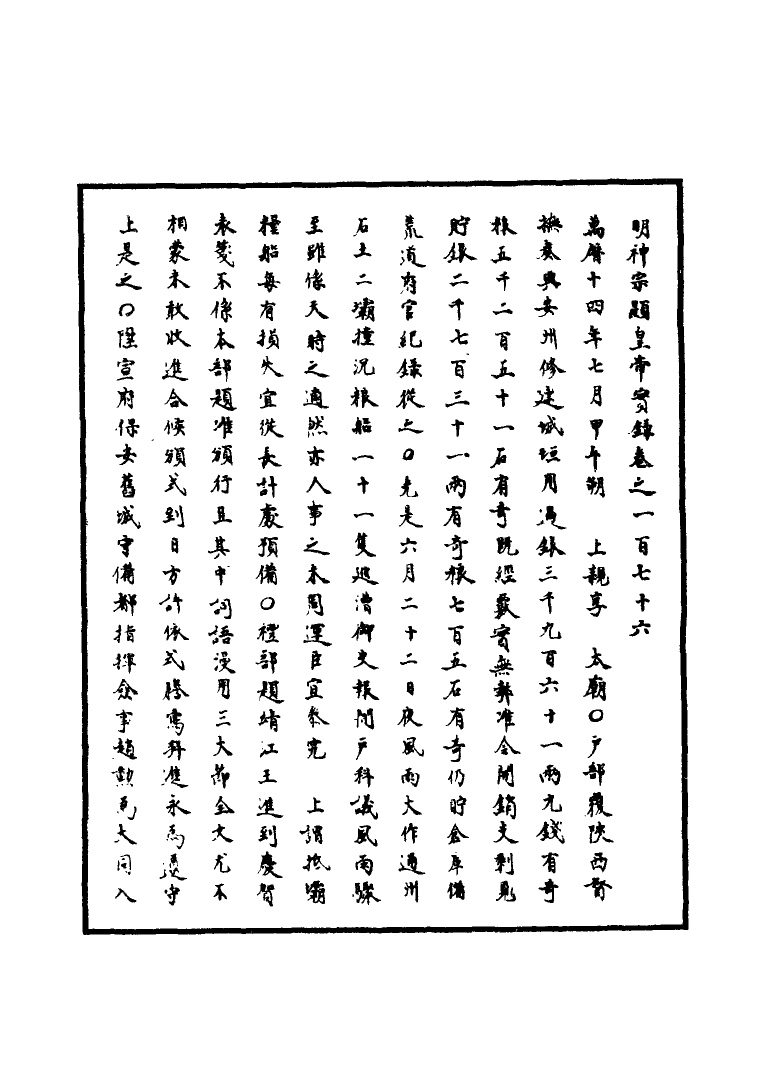 明神宗顯皇帝實錄卷之一百七十六
萬曆十四年七月甲午朔 上親享 太廟〇戶部覆陝西督
撫奏興安州修建城垣用過銀三千九百六十一兩九錢有奇
糧五千二百五十一石有奇既經覈實無弊准令開銷支剩見
貯銀二千七百三十一兩有奇糧七百五石有奇仍貯倉庫備
荒道府官紀錄從之〇先是六月二十二日夜風雨大作通州
石土二壩撞沉糧船一十一隻巡漕御史報聞戶科議風雨驟
至雖係天時之適然亦人事之未周運臣宜參究 上謂抵壩
糧船每有損失宜從長計處預備〇禮部題靖江王進到慶賀
表箋不係本部題准頒行且其中詞語漫用三大節全文尤不
相蒙未敢收進合候頒式到日方許依式謄寫科進永為遵守
上是之〇陞宣府保安舊城守備都指揮僉事趙勲為大同入